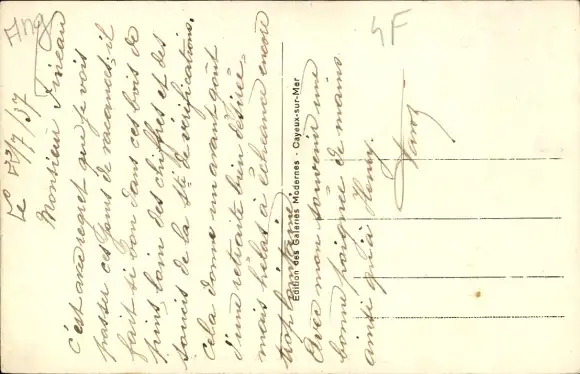 Ang
4F
Le 22/7/37
Monsieur Fineau
c'est avec regret que je vois
passer ces jours de vacances; il
fait si bon dans ces bois de
pins loin des chiffres et des
soucis de la Sté de vérifications.
Cela donne un avant goût
d'une retraite bien désirée,
mais hélas à échéance encore
trop lointaine.
Avec mon souvenir une
bonne poignée de mains
ainsi qu'à Henry.
Edition des Galeries Modernes - Cayeux-sur-Mer